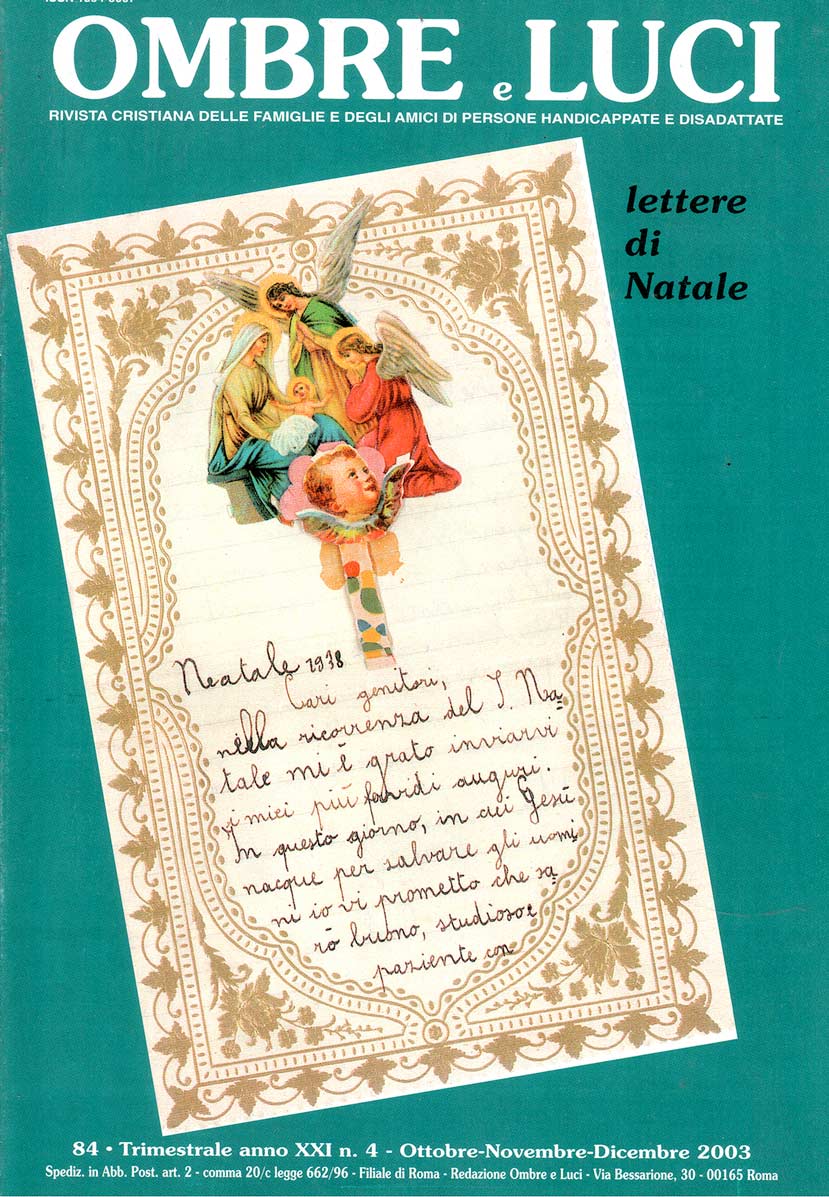 OMBRE e LUCI
RIVISTA CRISTIANA DELLE FAMIGLIE E DEGLI AMICI DI PERSONE HANDICAPPATE E DISADATTATE
lettere
di
Natale
Neatale 1938
Cari genitori,
nella ricorrenza del S. Na=
tale mi è grato inviarvi
i miei più favidi auguri.
In questo giorno, in cui Gesù
nacque per salvare gli uomi
ni io vi prometto che sa=
rò buono, studioso e
paziente con
84 • Trimestrale anno XXI n. 4 - Ottobre-Novembre-Dicembre 2003
Spediz. in Abb. Post. art. 2 - comma 20/c legge 662/96 - Filiale di Roma - Redazione Ombre e Luci - Via Bessarione, 30 - 00165 Roma